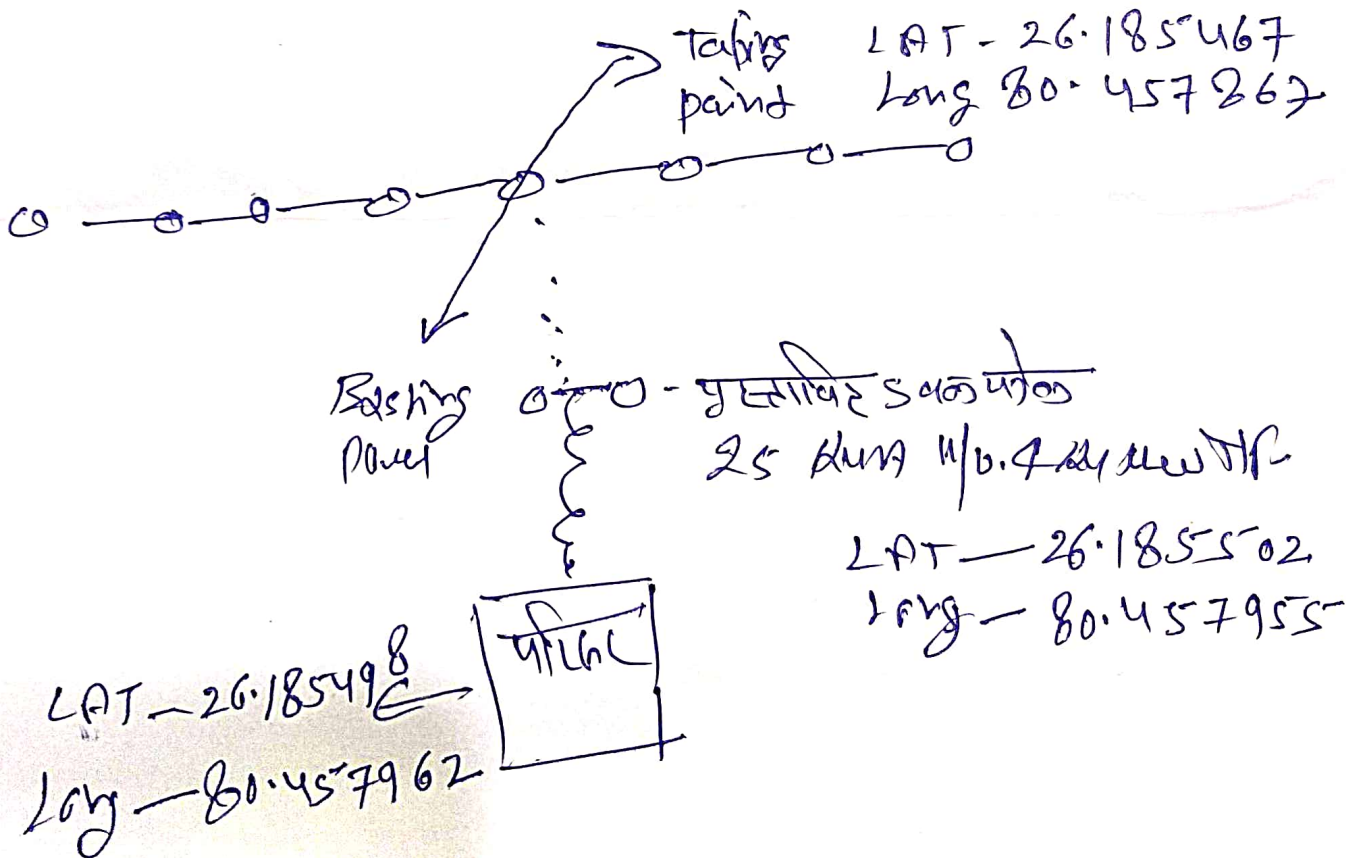 Taping LAT - 26.185467
point Long 80.457867
Existing
प्रस्तावित डबल पोल
25 KVA 11/0.4
LAT — 26.185502
Long — 80.457955
परिसर
LAT — 26.185498
Long — 80.457962